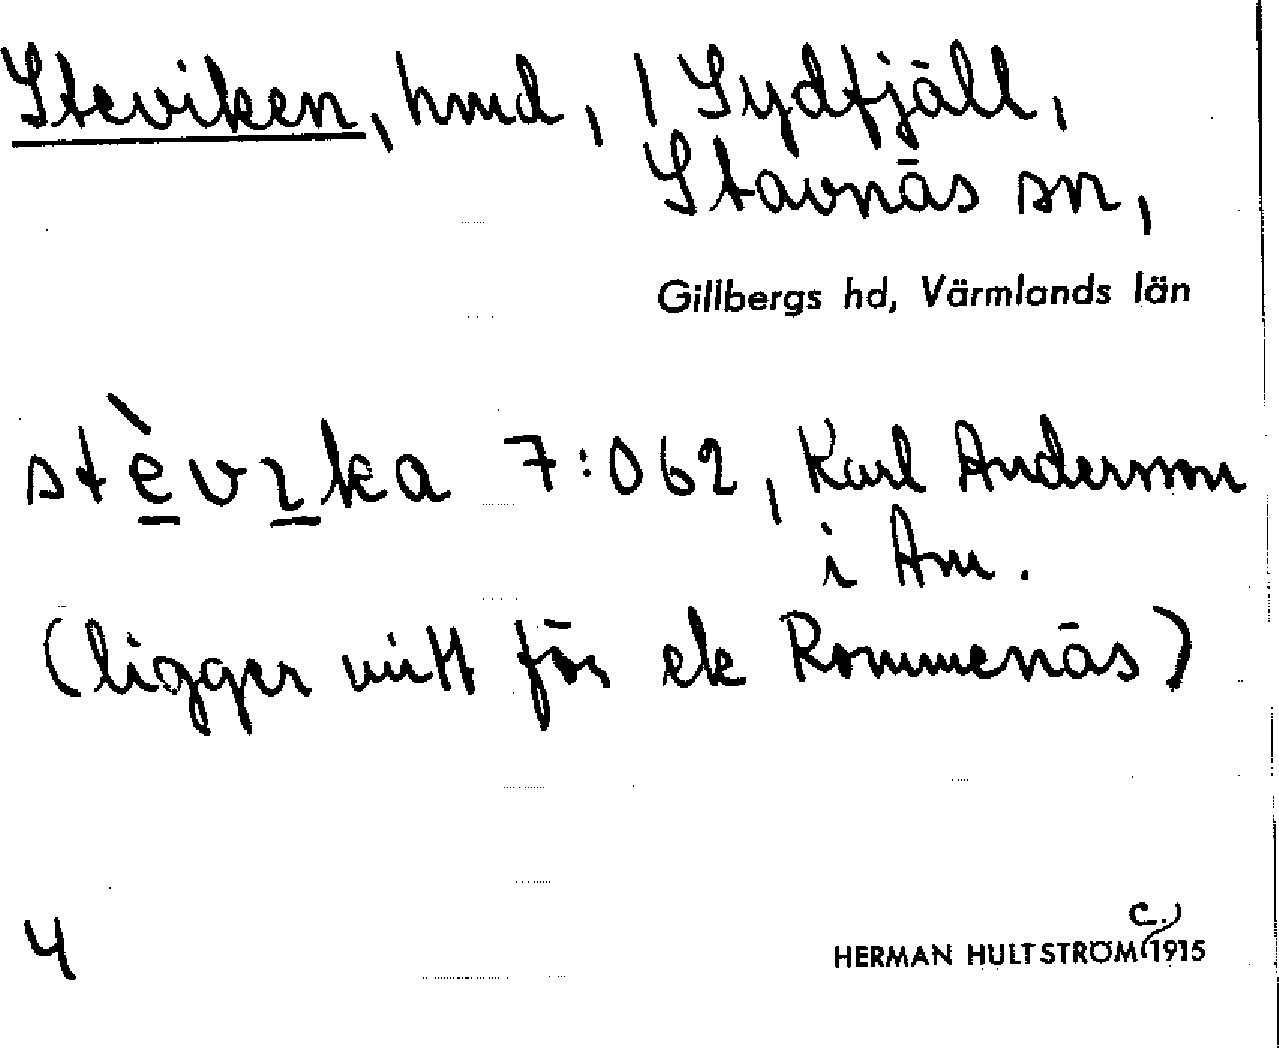 Steviken, hmd, / Sydfjäll,
Stavnäs sn,
Gillbergs hd, Värmlands län
stèvıka 7:062, Karl Andersson
i Am.
(ligger mitt för ek Rommenäs)
4
C.
HERMAN HULTSTRÖM 1915